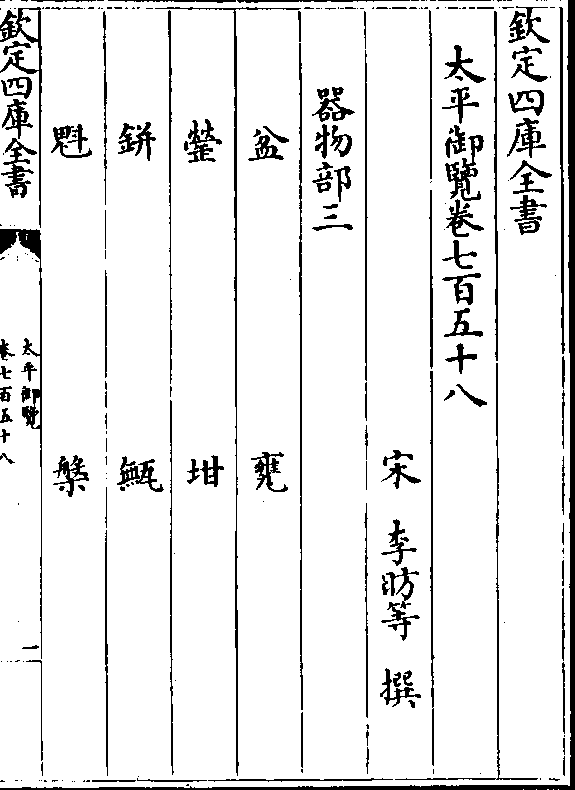 欽定四庫全書
太平御覽卷七百五十八
宋 李昉等 撰
器物部三
盆 甕
罃 坩
缾 甒
魁 槃
欽定四庫全書
太平御覽
卷七百五十八
一